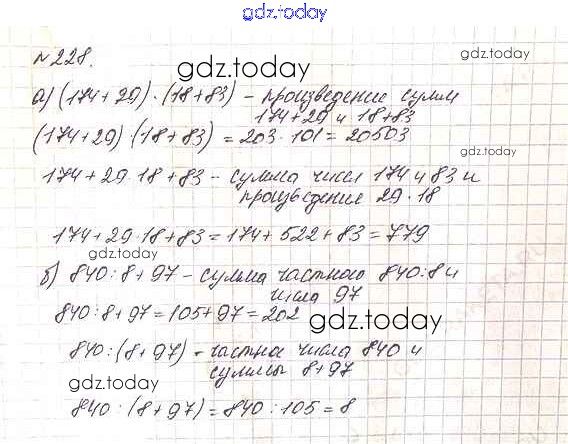 gdz.today
№228.
gdz.today
gdz.today
а) (174+29)·(18+83) - произведение сумм
174+29 и 18+83
(174+29)·(18+83) = 203·101 = 20503
gdz.today
174+29·18+83 - сумма чисел 174 и 83 и
произведение 29·18
174+29·18+83 = 174+522+83 = 779
б) 840:8+97 - сумма частного 840:8 и
числа 97
840:8+97 = 105+97 = 202
gdz.today
840:(8+97) - частное числа 840 и
суммы 8+97
gdz.today
840:(8+97) = 840:105 = 8